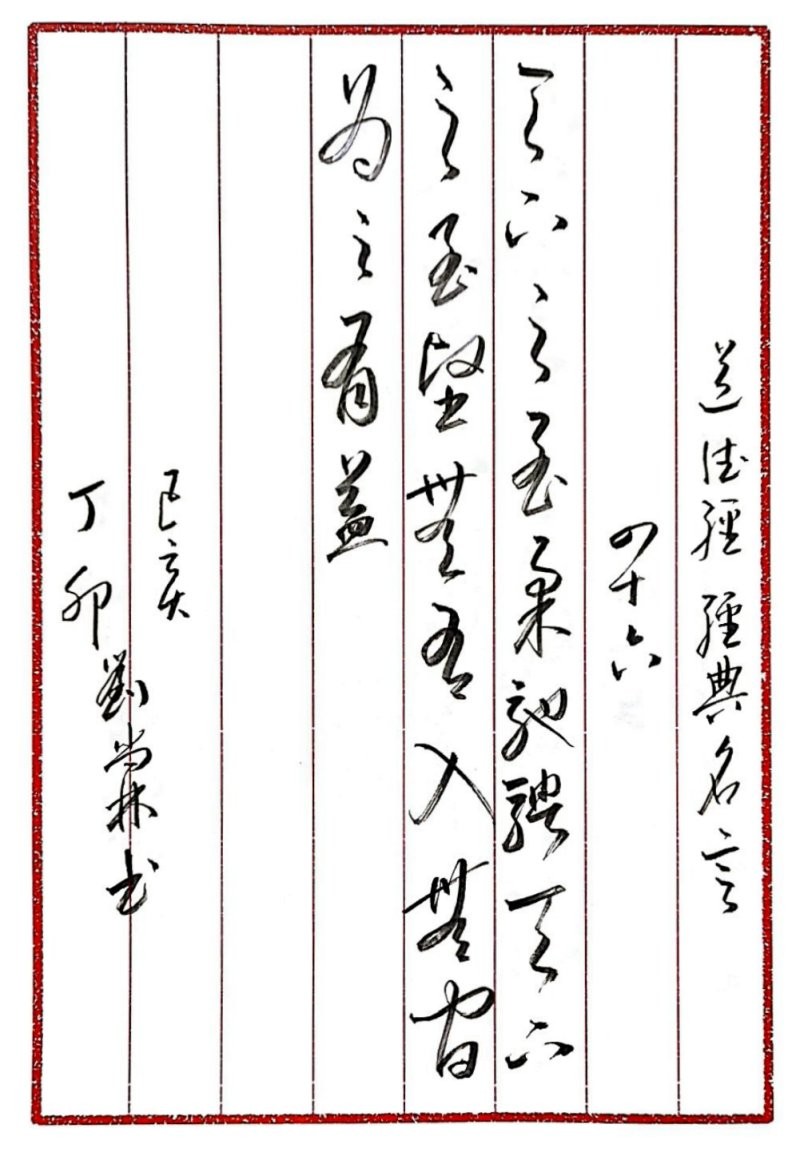 道德經經典名言
四十六
天下之至柔馳騁天下
之至堅無有入無間
為之有益
己亥
丁卯劉嵩林書